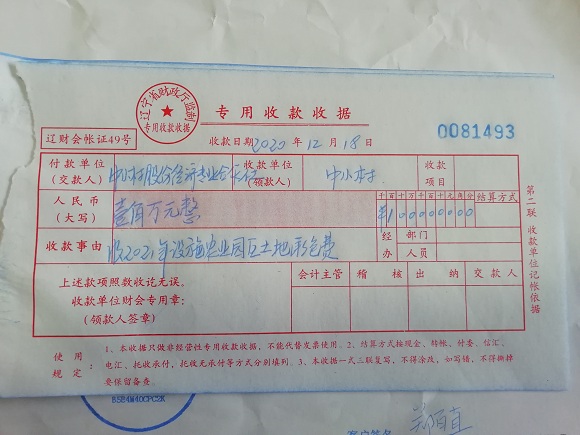 辽宁省财政厅监制
专用收款收据
专用收款收据
0081493
辽财会帐证49号
收款日期2020年12月18日
付款单位
(交款人)
中小村股份经济专业合作社
收款单位
(领款人)
中小村
收款
项目
人民币
(大写)
壹百万元整
千百十万千百十元角分
结算方式
¥100000000
收款事由
收2021年设施农业园区土地承包费
经办
部门
人员
上述款项照数收讫无误。
收款单位财会专用章:
(领款人签章)
会计主管
稽核
出纳
交款人
第二联 收款单位记帐依据
使用规定:
1、本收据只做非经营性专用收款收据,不能代替发票使用。2、结算方式按现金、转帐、付委、信汇、
电汇、托收承付,托收无承付等方式分别填列。3、本收据一式三联复写,不得涂改,如写错,不得撕掉
要保留备查。
郑百直